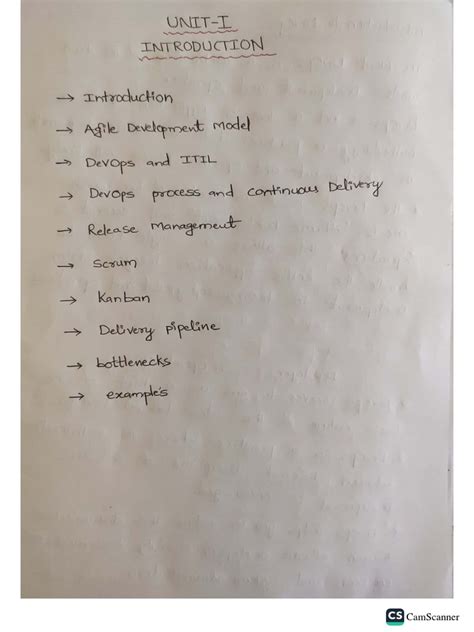 UNIT-I
INTRODUCTION
→ Introduction
→ Agile Development Model
→ DevOps and ITIL
→ DevOps process and continuous Delivery
→ Release Management
→ Scrum
→ Kanban
→ Delivery pipeline
→ bottlenecks
→ example's
CS CamScanner